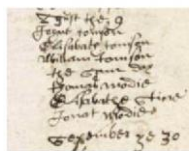 the 9
Jonet tomson
Elisabate tomson
William tomson
the same day
Wodie
Elisabathe
Jonat Wodie
September ye 30